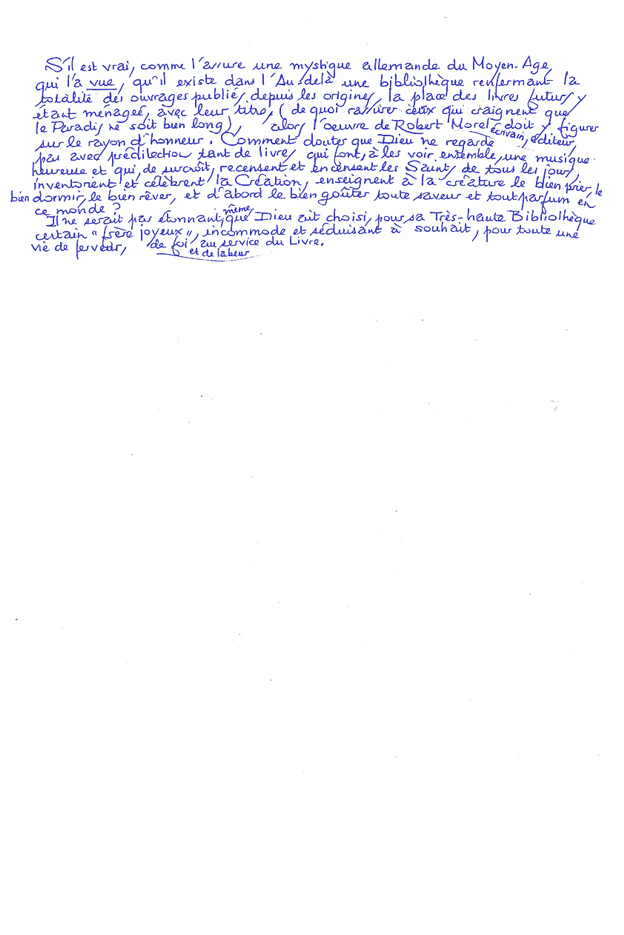 S'il est vrai, comme l'assure une mystique allemande du Moyen-Age,
qui l'a vue, qu'il existe dans l'Au-delà une bibliothèque renfermant la
totalité des ouvrages publiés depuis les origines, la place des livres futurs y
étant ménagée, avec leur titre, (de quoi rassurer ceux qui craignent que
le Paradis ne soit bien long), alors l'oeuvre de Robert Morel, écrivain, éditeur, doit y figurer
sur le rayon d'honneur. Comment douter que Dieu ne regarde
pas avec prédilection tant de livres qui font, à les voir ensemble, une musique
heureuse et qui, de surcroît, recensent et encensent les Saints de tous les jours,
inventorient et célèbrent la Création, enseignent à la créature le bien prier, le
bien dormir, le bien rêver, et d'abord le bien goûter toute saveur et tout parfum en
ce monde ?
Il ne serait pas étonnant, même, que Dieu ait choisi, pour sa Très-haute Bibliothèque
certain "frère joyeux", incommode et séduisant à souhait, pour toute une
vie de ferveur, de foi, et de labeur au service du Livre.